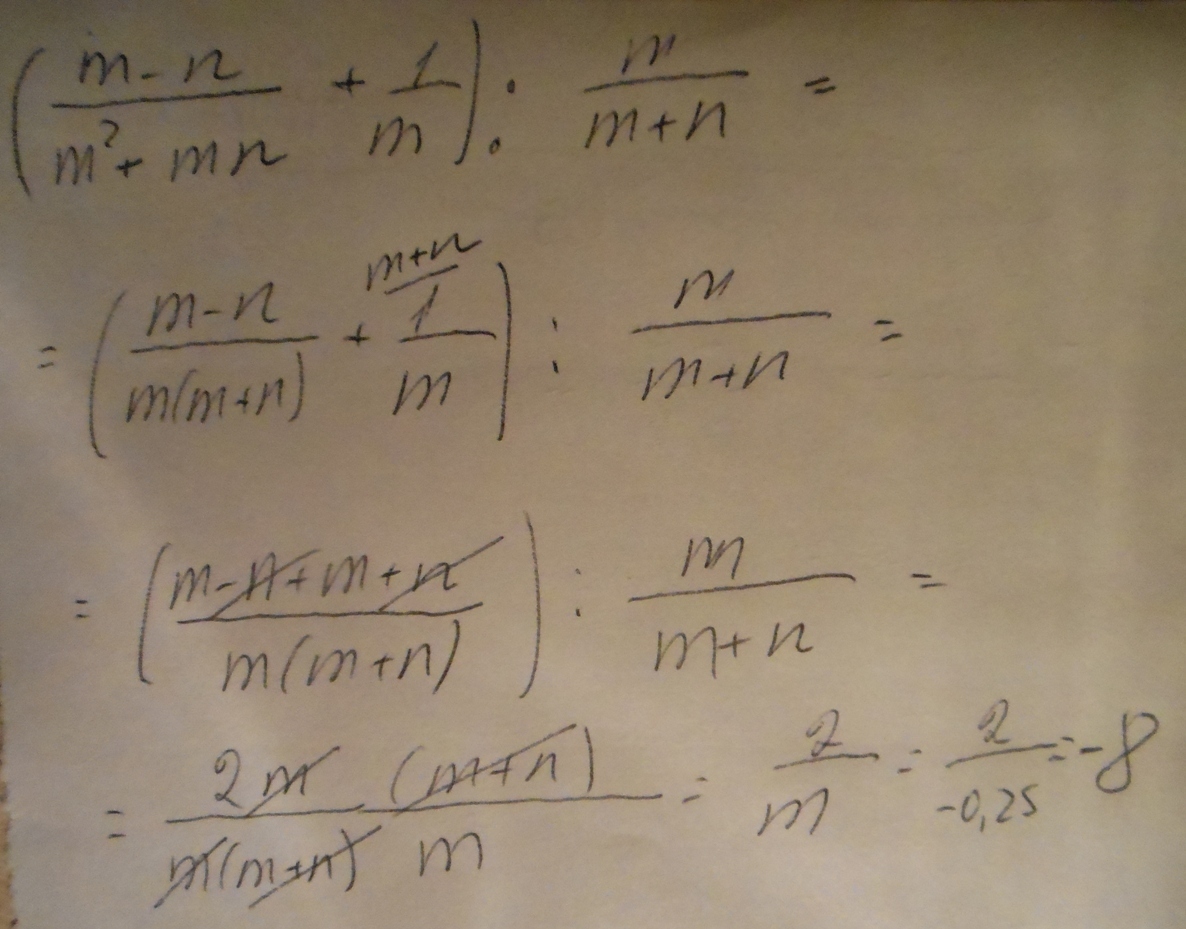 (\frac{m-n}{m²+mn} + \frac{1}{m}) : \frac{m}{m+n} =
= (\frac{m-n}{m(m+n)} + \frac{1}{m}^{m+n/}) : \frac{m}{m+n} =
= (\frac{m-n+m+n}{m(m+n)}) : \frac{m}{m+n} =
= \frac{2m (m+n)}{m(m+n) m} = \frac{2}{m} = \frac{2}{-0,25} = -8